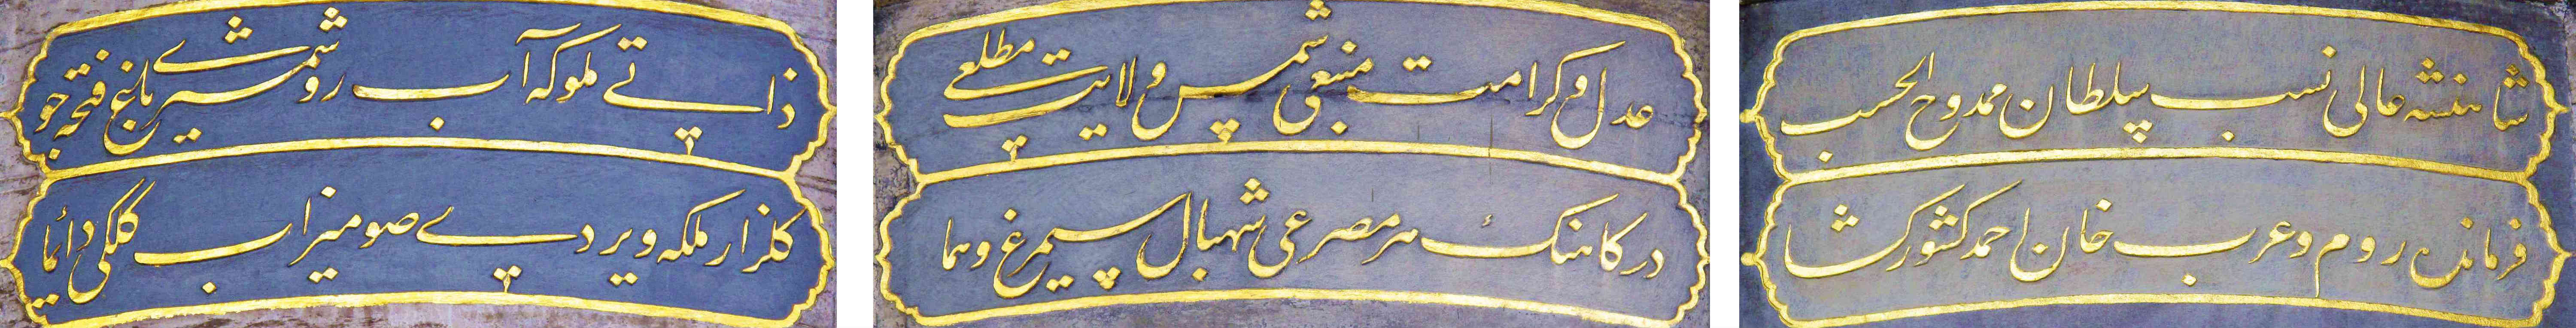 شاهنشه عالی نسب سلطان ممدوح الحسب
فرمانده روم و عرب خان احمد کشورکشا
عدل و کرامت منبعی شمس ولایت مطلعی
درکاهنک هر مصرعی شهبال سیمرغ و هما
ذاتی ملوکه آب رو شمشیری باغ فتحه جو
کلزار ملکه ویردی صو میزاب کلکی دائما